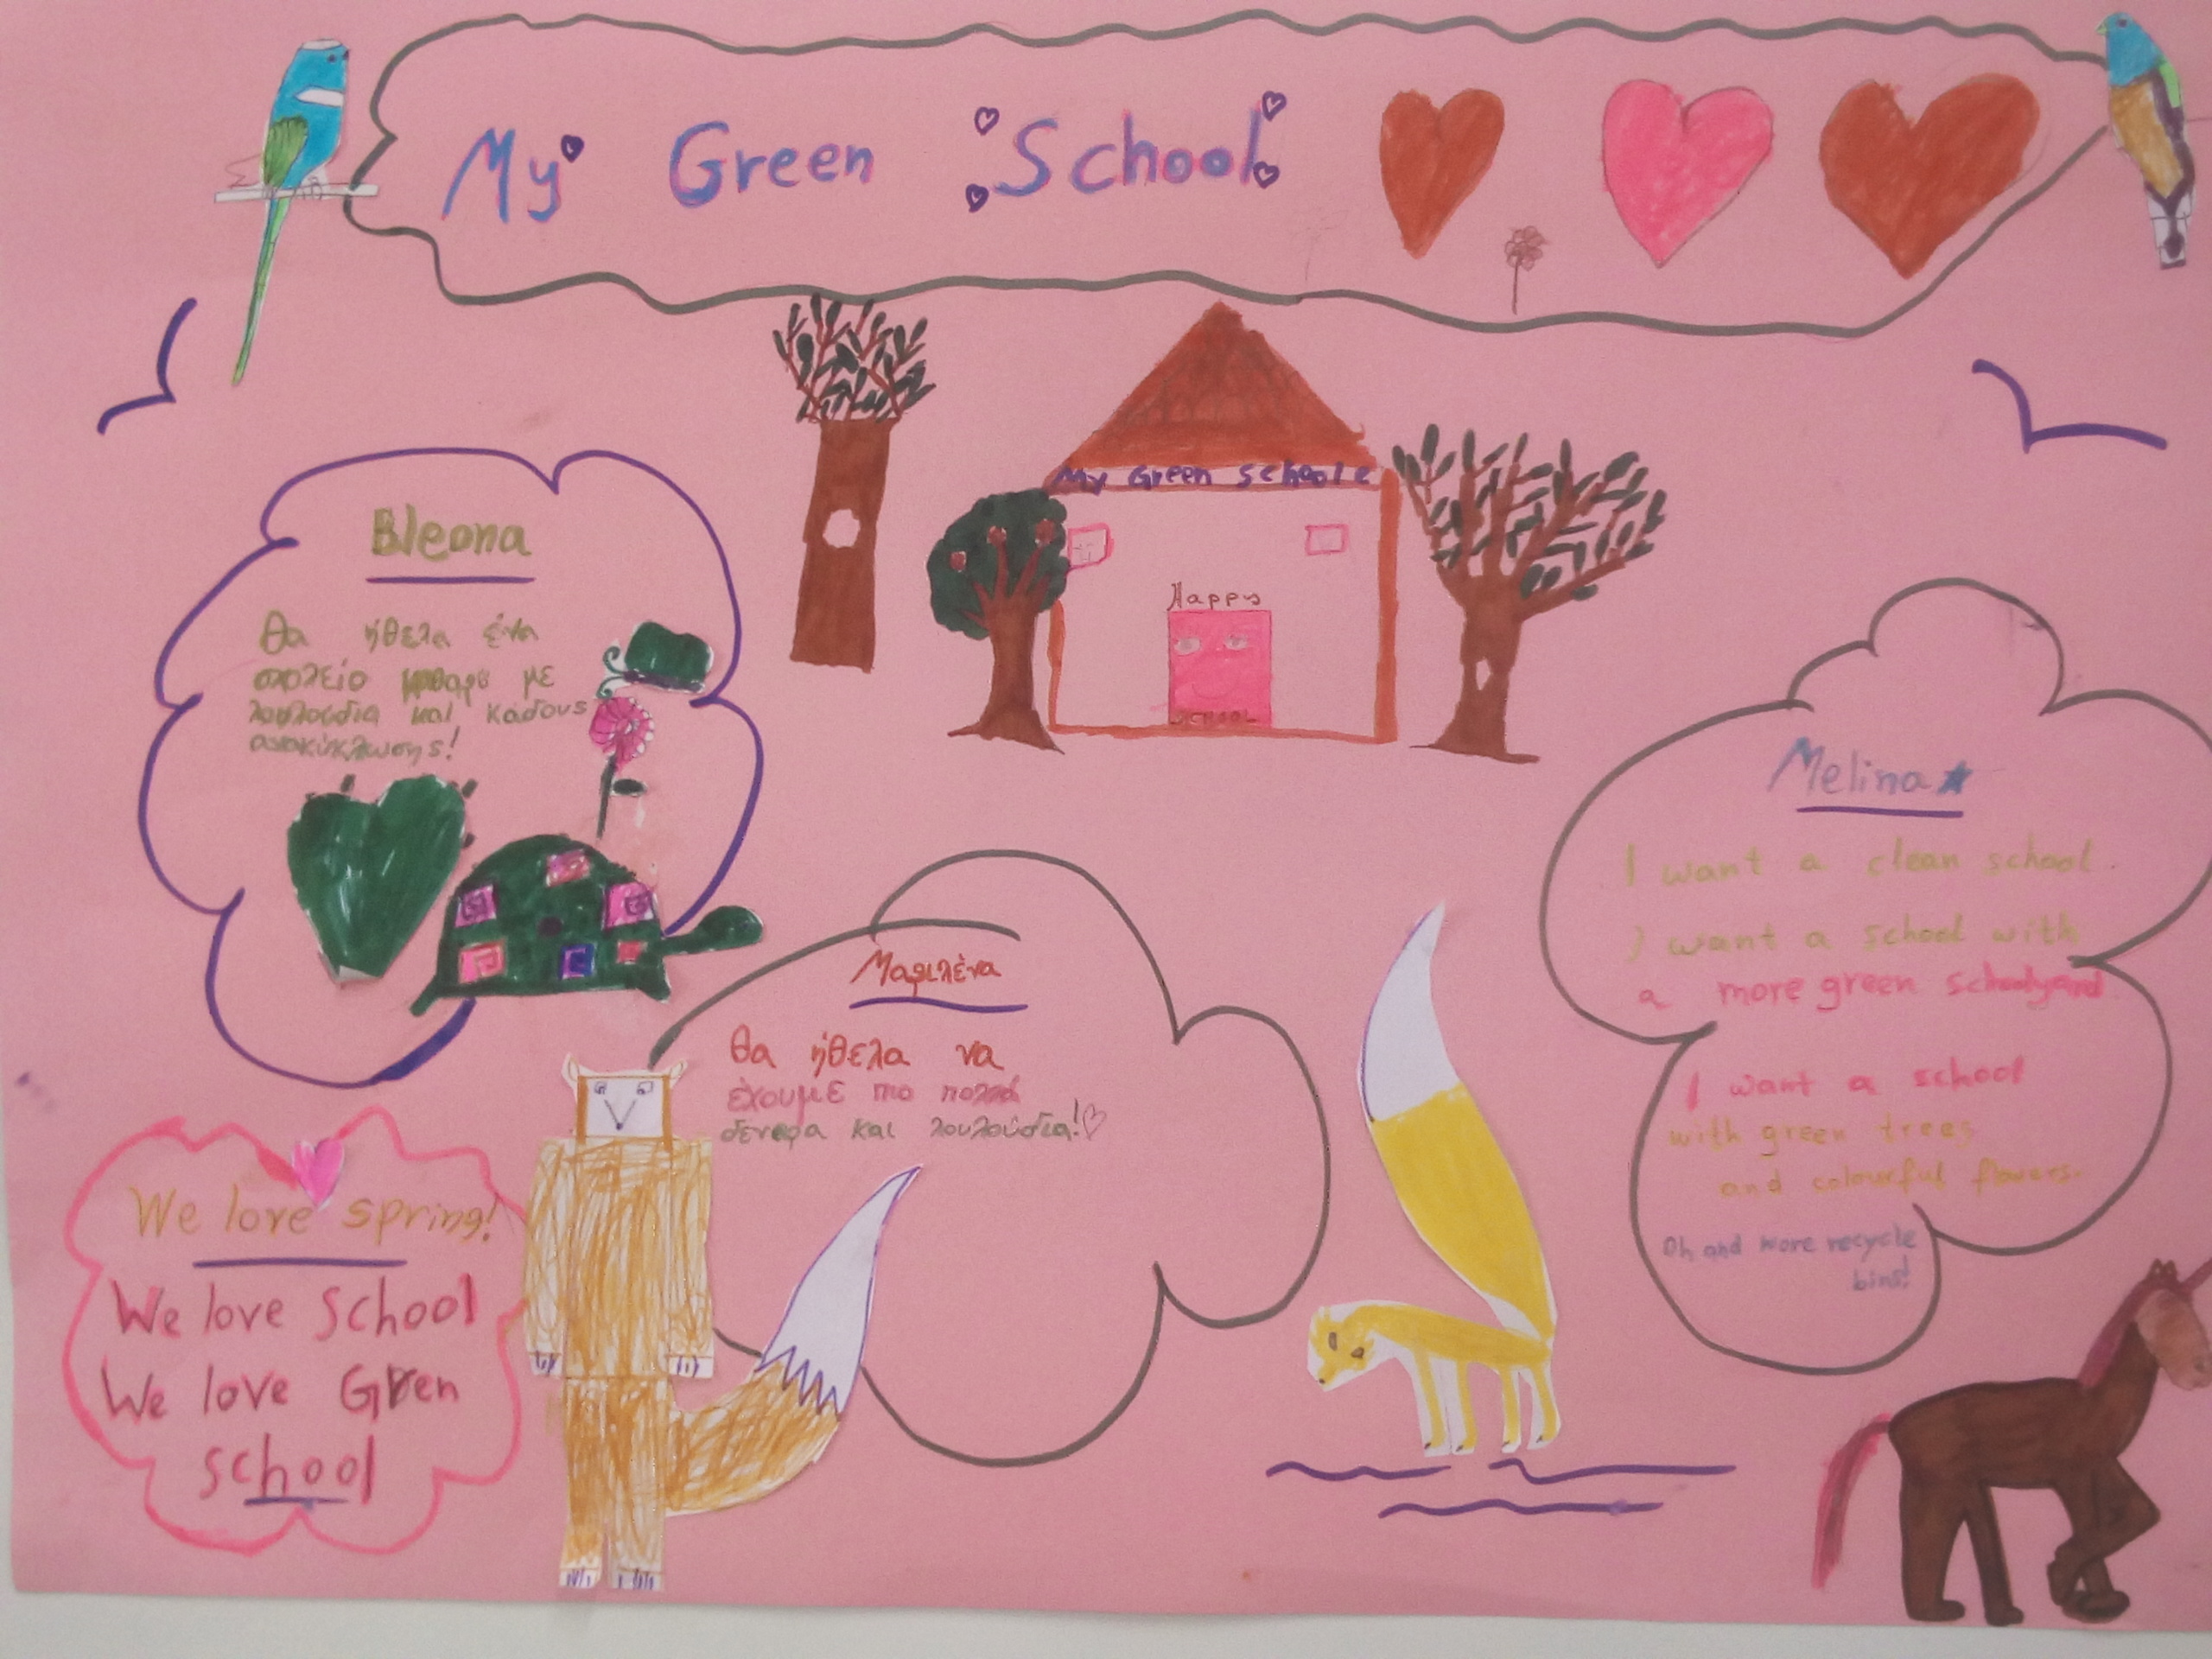 My Green School
My Green School
Happy
SCHOOL
Bleona
Θα ήθελα ένα
σχολείο με
λουλούδια και κάδους
ανακύκλωσης!
Μαριλένα
Θα ήθελα να
έχουμε πιο πολλά
δέντρα και λουλούδια!
Melina
I want a clean school.
I want a school with
a more green schoolyard.
I want a school
with green trees
and colourful flowers.
Oh and more recycle
bins!
We love spring!
We love School
We love Green
school